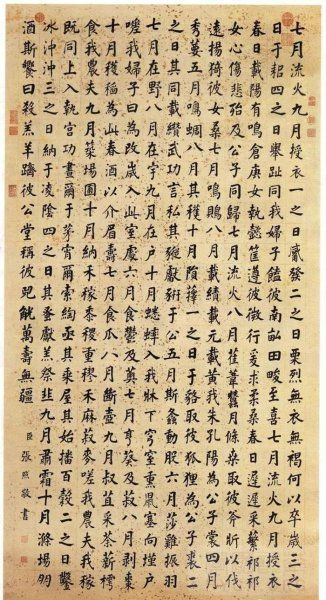 七月流火九月授衣一之日觱發二之日栗烈無衣無褐何以卒歲三之
日于耜四之日舉趾同我婦子饁彼南畝田畯至喜七月流火九月授衣
春日載陽有鳴倉庚女執懿筐遵彼微行爰求柔桑春日遲遲采蘩祁祁
女心傷悲殆及公子同歸七月流火八月萑葦蠶月條桑取彼斧斨以伐
遠揚猗彼女桑七月鳴鵙八月載績載元載黃我朱孔陽為公子裳四月
秀葽五月鳴蜩八月其穫十月隕蘀一之日于貉取彼狐狸為公子裘二
之日其同載纘武功言私其豵獻豜于公五月斯螽動股六月莎雞振羽
七月在野八月在宇九月在戶十月蟋蟀入我牀下穹窒熏鼠塞向墐戶
嗟我婦子曰為改歲入此室處六月食鬱及薁七月亨葵及菽八月剝棗
十月穫稻為此春酒以介眉壽七月食瓜八月斷壺九月叔苴采荼薪樗
食我農夫九月築場圃十月納禾稼黍稷重穋禾麻菽麥嗟我農夫我稼
既同上入執宮功晝爾于茅宵爾索綯亟其乘屋其始播百穀二之日鑿
冰沖沖三之日納于凌陰四之日其蚤獻羔祭韭九月肅霜十月滌場朋
酒斯饗曰殺羔羊躋彼公堂稱彼兕觥萬壽無疆
臣張照敬書